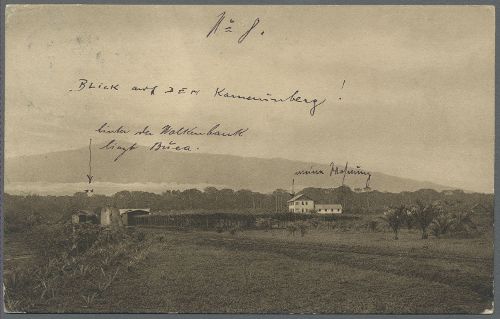 No 8.
Blick auf DEM Kamerunberg!
hinter der Wolkenbank
liegt Buea.
meine Wohnung